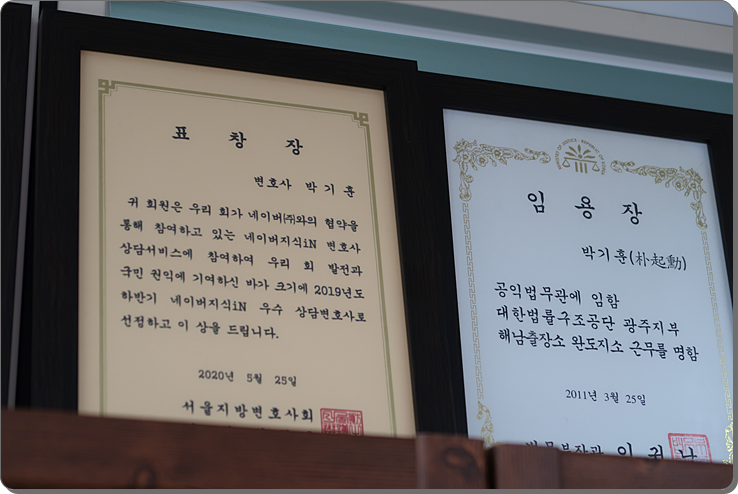 표 창 장
변호사 박 기 훈
귀 회원은 우리 회가 네이버㈜와의 협약을
통해 참여하고 있는 네이버지식iN 변호사
상담서비스에 참여하여 우리 회 발전과
국민 권익에 기여하신 바가 크기에 2019년도
하반기 네이버지식iN 우수 상담변호사로
선정하고 이 상을 드립니다.
2020년 5월 25일
서울지방변호사회
임 용 장
박기훈(朴起勳)
공익법무관에 임함
대한법률구조공단 광주지부
해남출장소 완도지소 근무를 명함
2011년 3월 25일
법무부장관 이 귀 남